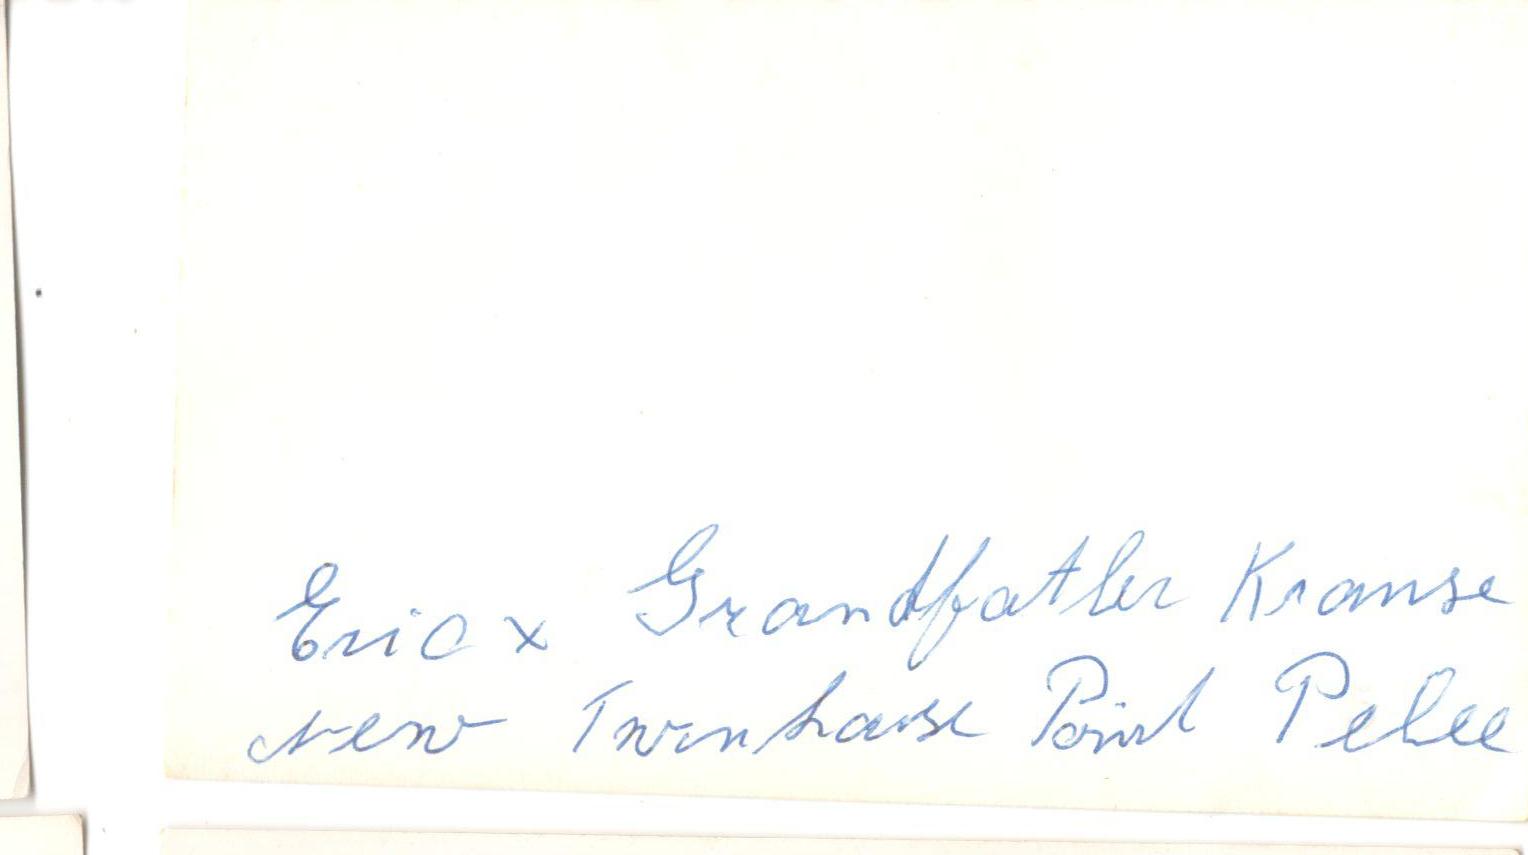 Eric x Grandfather Krause
New Townhouse Point Pelee